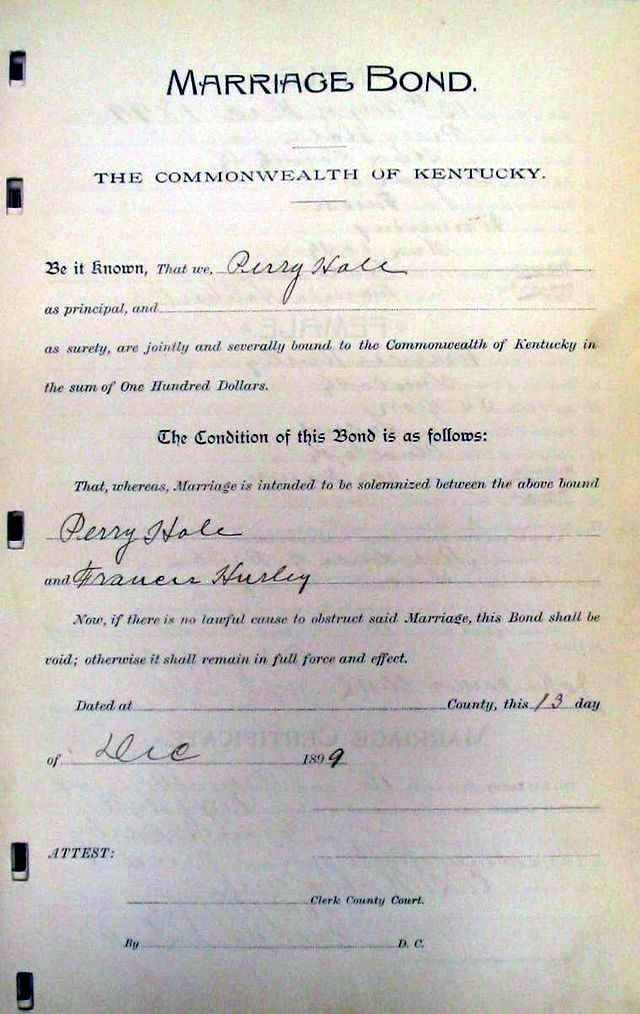 MARRIAGE BOND.
THE COMMONWEALTH OF KENTUCKY.
Be it Known, That we, Perry Hale
as principal, and
as surety, are jointly and severally bound to the Commonwealth of Kentucky in
the sum of One Hundred Dollars.
The Condition of this Bond is as follows:
That, whereas, Marriage is intended to be solemnized between the above bound
Perry Hale
and Francis Hurley
Now, if there is no lawful cause to obstruct said Marriage, this Bond shall be
void; otherwise it shall remain in full force and effect.
Dated at County, this 13 day
of Dec 1899
ATTEST:
Clerk County Court.
By D. C.